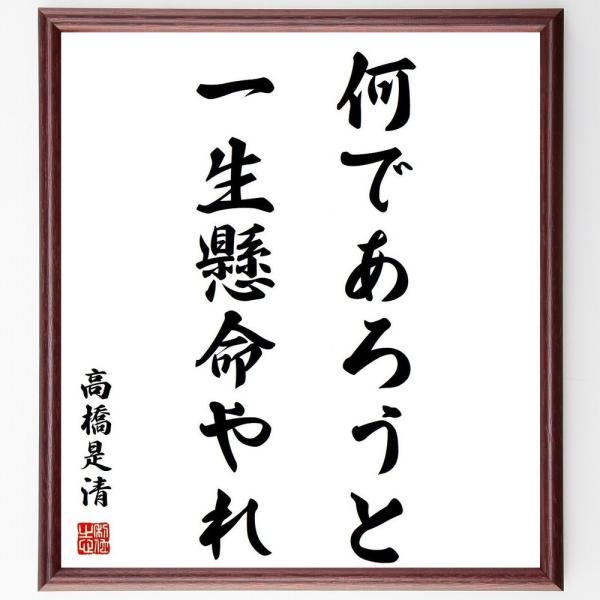 何であろうと
一生懸命やれ
高橋是清